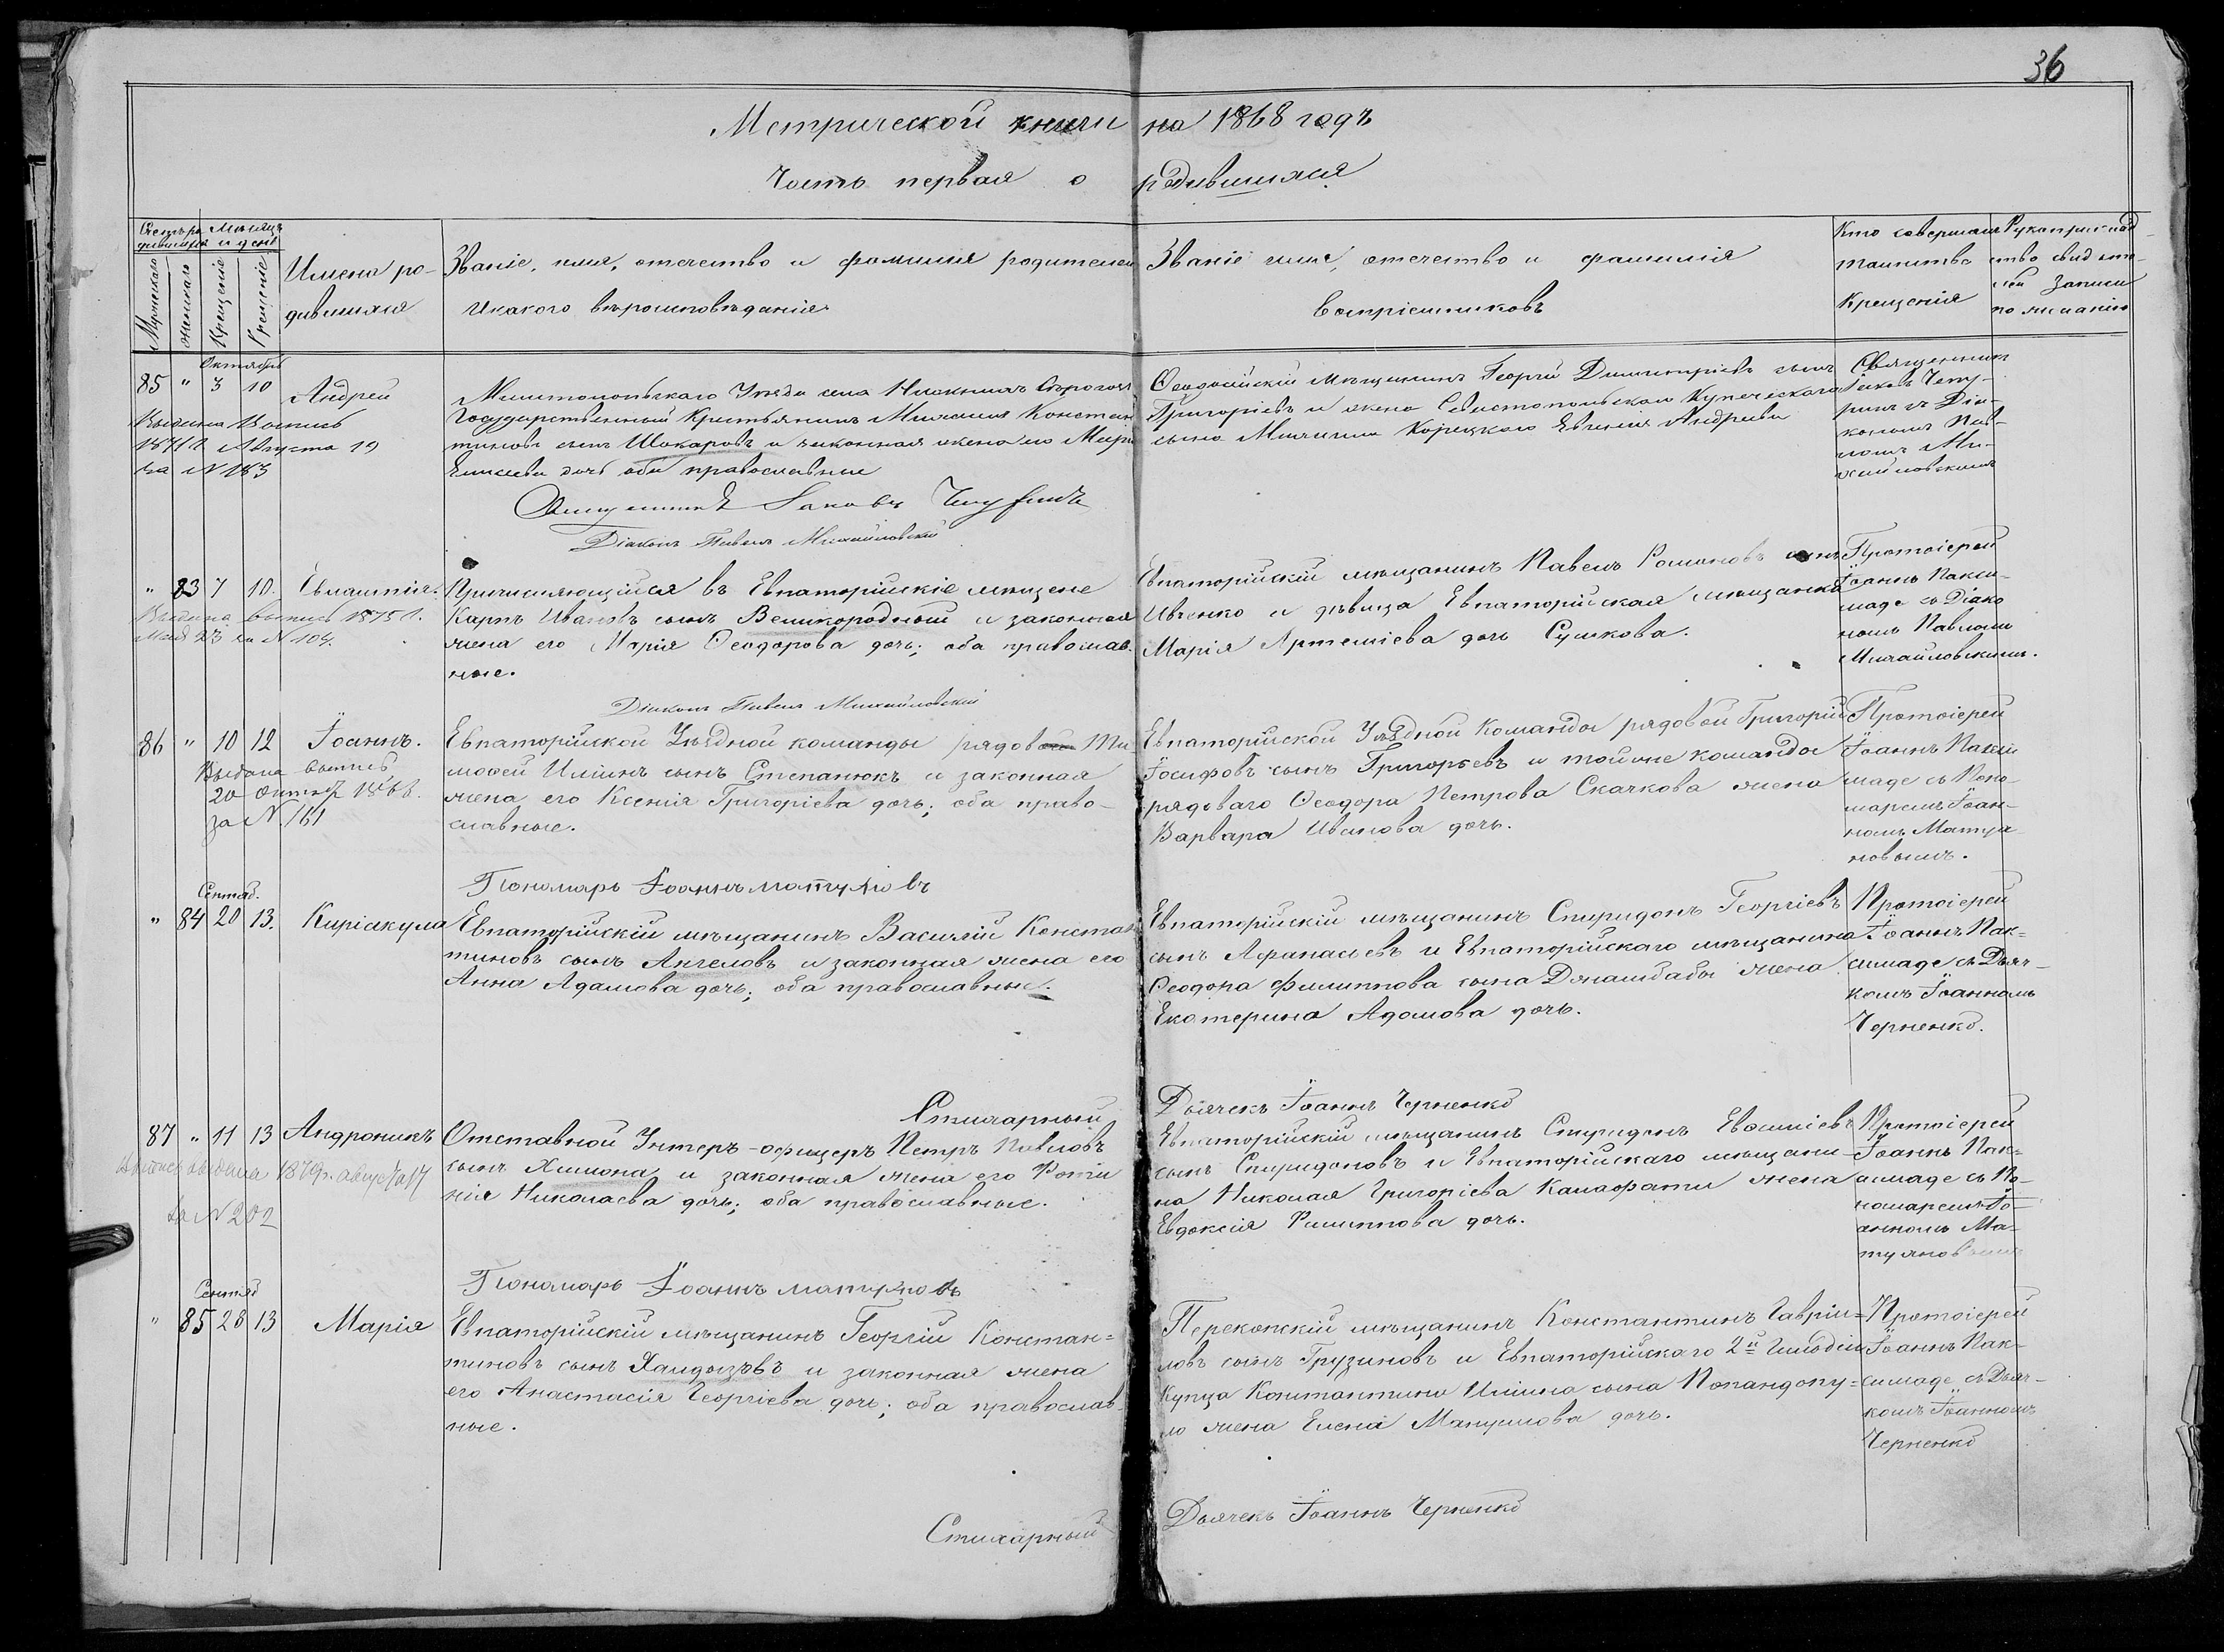 36
Метрической книги на 1868 годъ
Часть первая о родившихся
Счетъ ро-
дившихся
Мѣсяцъ
и день
Мужескаго
Женскаго
Крещеніе
Имена ро-
дившихся
Званіе, имя, отчество и фамилія родителей
и какого вѣроисповѣданія
Званіе имя, отчество и фамилія
воспріемниковъ
Кто совершалъ
таинство
Крещенія
Рукоприклад-
ство свидѣте-
лей записи
по желанію
Октябрь
85 " 3 10
Андрей
Выдана Выпись
Августа 19
за № 183
Мелитопольскаго Уѣзда села Нижнихъ Сѣрогозъ
Государственный Крестьянинъ Михаилъ Констан
тиновъ сынъ Шокаровъ и законная жена его Марѳа
Елисеева дочь оба православные
Священникъ Іаковъ Чепуринъ
Діаконъ Павелъ Михайловскій
Ѳеодосійскій мѣщанинъ Георгій Димитріевъ сынъ
Григорьевъ и жена Севастопольскаго Купеческаго
сына Михаила Корецкаго Евгенія Андреева
Священникъ
Іаковъ Чепу-
ринъ съ Діа-
кономъ Пав-
ломъ Ми-
хайловскимъ
" 83 7 10.
Евлампія.
Выдана выпись 1875 г.
Мая 23 за № 104.
Причисляющійся въ Евпаторійскіе мѣщане
Карпъ Ивановъ сынъ Великородный и законная
жена его Марія Ѳеодорова дочь; оба православ-
ные.
Діаконъ Павелъ Михайловскій
Евпаторійскій мѣщанинъ Павелъ Романовъ сынъ
Ивченко и дѣвица Евпаторійская мѣщанка
Марія Артеміева дочь Сушкова.
Протоіерей
Іоаннъ Пакси-
маде съ Діако
номъ Павломъ
Михайловскимъ.
86 " 10 12
Іоаннъ.
Выдана выпись
20 Октяб 1868.
за №. 161
Евпаторійской Уѣздной команды рядовой Ти
моѳей Ильинъ сынъ Степанюкъ и законная
жена его Ксенія Григоріева дочь; оба право-
славные.
Пономарь Іоаннъ Матуяновъ
Евпаторійской Уѣздной Команды рядовой Григорій
Іосифовъ сынъ Григорьевъ и той же команды
рядоваго Ѳеодора Петрова Скачкова жена
Варвара Иванова дочь.
Протоіерей
Іоаннъ Пакси
маде съ Поно-
маремъ Іоан-
номъ Матуя-
новымъ.
Сентяб.
" 84 20 13.
Киріакула
Евпаторійскій мѣщанинъ Василій Констан
тиновъ сынъ Ангеловъ и законная жена его
Анна Адамова дочь; оба православные.
Стихарный
Евпаторійскій мѣщанинъ Спиридонъ Георгіевъ
сынъ Аѳанасьевъ и Евпаторійскаго мѣщанина
Ѳеодора Филиппова сына Джамбабы жена
Екатерина Адамова дочь.
Дьячекъ Іоаннъ Черненко
Протоіерей
Іоаннъ Пак=
симаде съ Дьяч-
комъ Іоанномъ
Черненко.
87 " 11 13
Андроникъ
Выпись выдана 1879 г. августа 17
за № 202
Отставной Унтеръ-офицеръ Петръ Павловъ
сынъ Химона и законная жена его Фоти
нія Николаева дочь; оба православные.
Пономарь Іоаннъ Матуяновъ
Евпаторійскій мѣщанинъ Спиридонъ Евѳиміевъ
сынъ Спиридоновъ и Евпаторійскаго мѣщани-
на Николая Григоріева Калафати жена
Евдоксія Филиппова дочь.
Протоіерей
Іоаннъ Пак-
симаде съ По-
номаремъ Іо-
анномъ Ма-
туяновымъ
Сентяб
" 85 28 13
Марія
Евпаторійскій мѣщанинъ Георгій Констан=
тиновъ сынъ Халдызѣвъ и законная жена
его Анастасія Георгіева дочь; оба православ-
ные.
Стихарный
Перекопскій мѣщанинъ Константинъ Гавріи=
ловъ сынъ Грузиновъ и Евпаторійскаго 2й Гильдіи
Купца Константина Ильина сына Попандопу=
ло жена Елена Мануилова дочь.
Дьячекъ Іоаннъ Черненко
Протоіерей
Іоаннъ Пак-
симаде съ Дьяч-
комъ Іоанномъ
Черненко